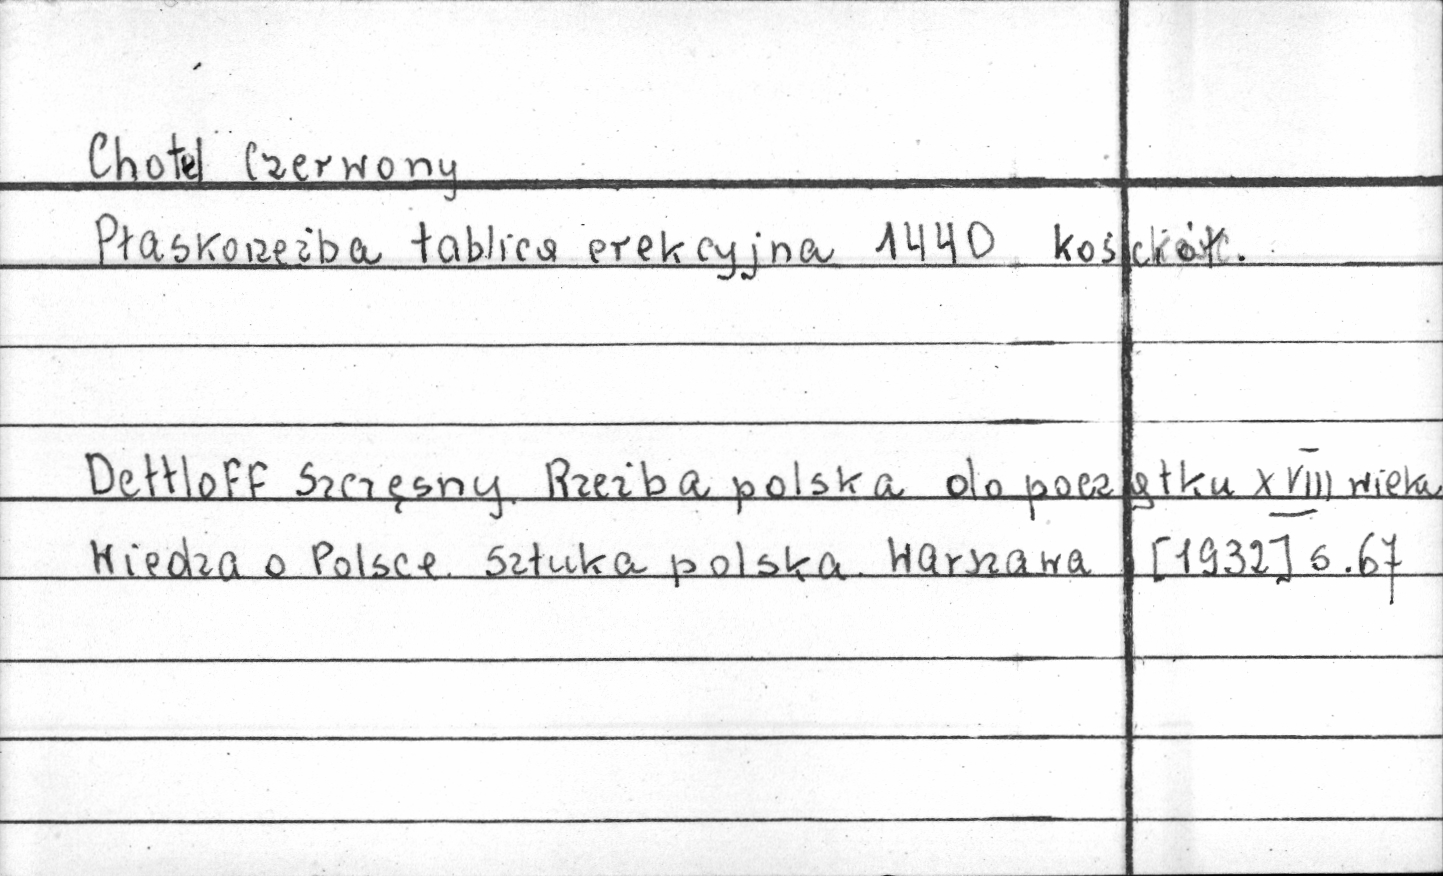 Chotel Czerwony
Płaskorzeźba tablica erekcyjna 1440 kościół.
Dettloff Szczęsny. Rzeźba polska do początku XVIII wieku
Wiedza o Polsce. Sztuka polska. Warszawa [1932] s.67